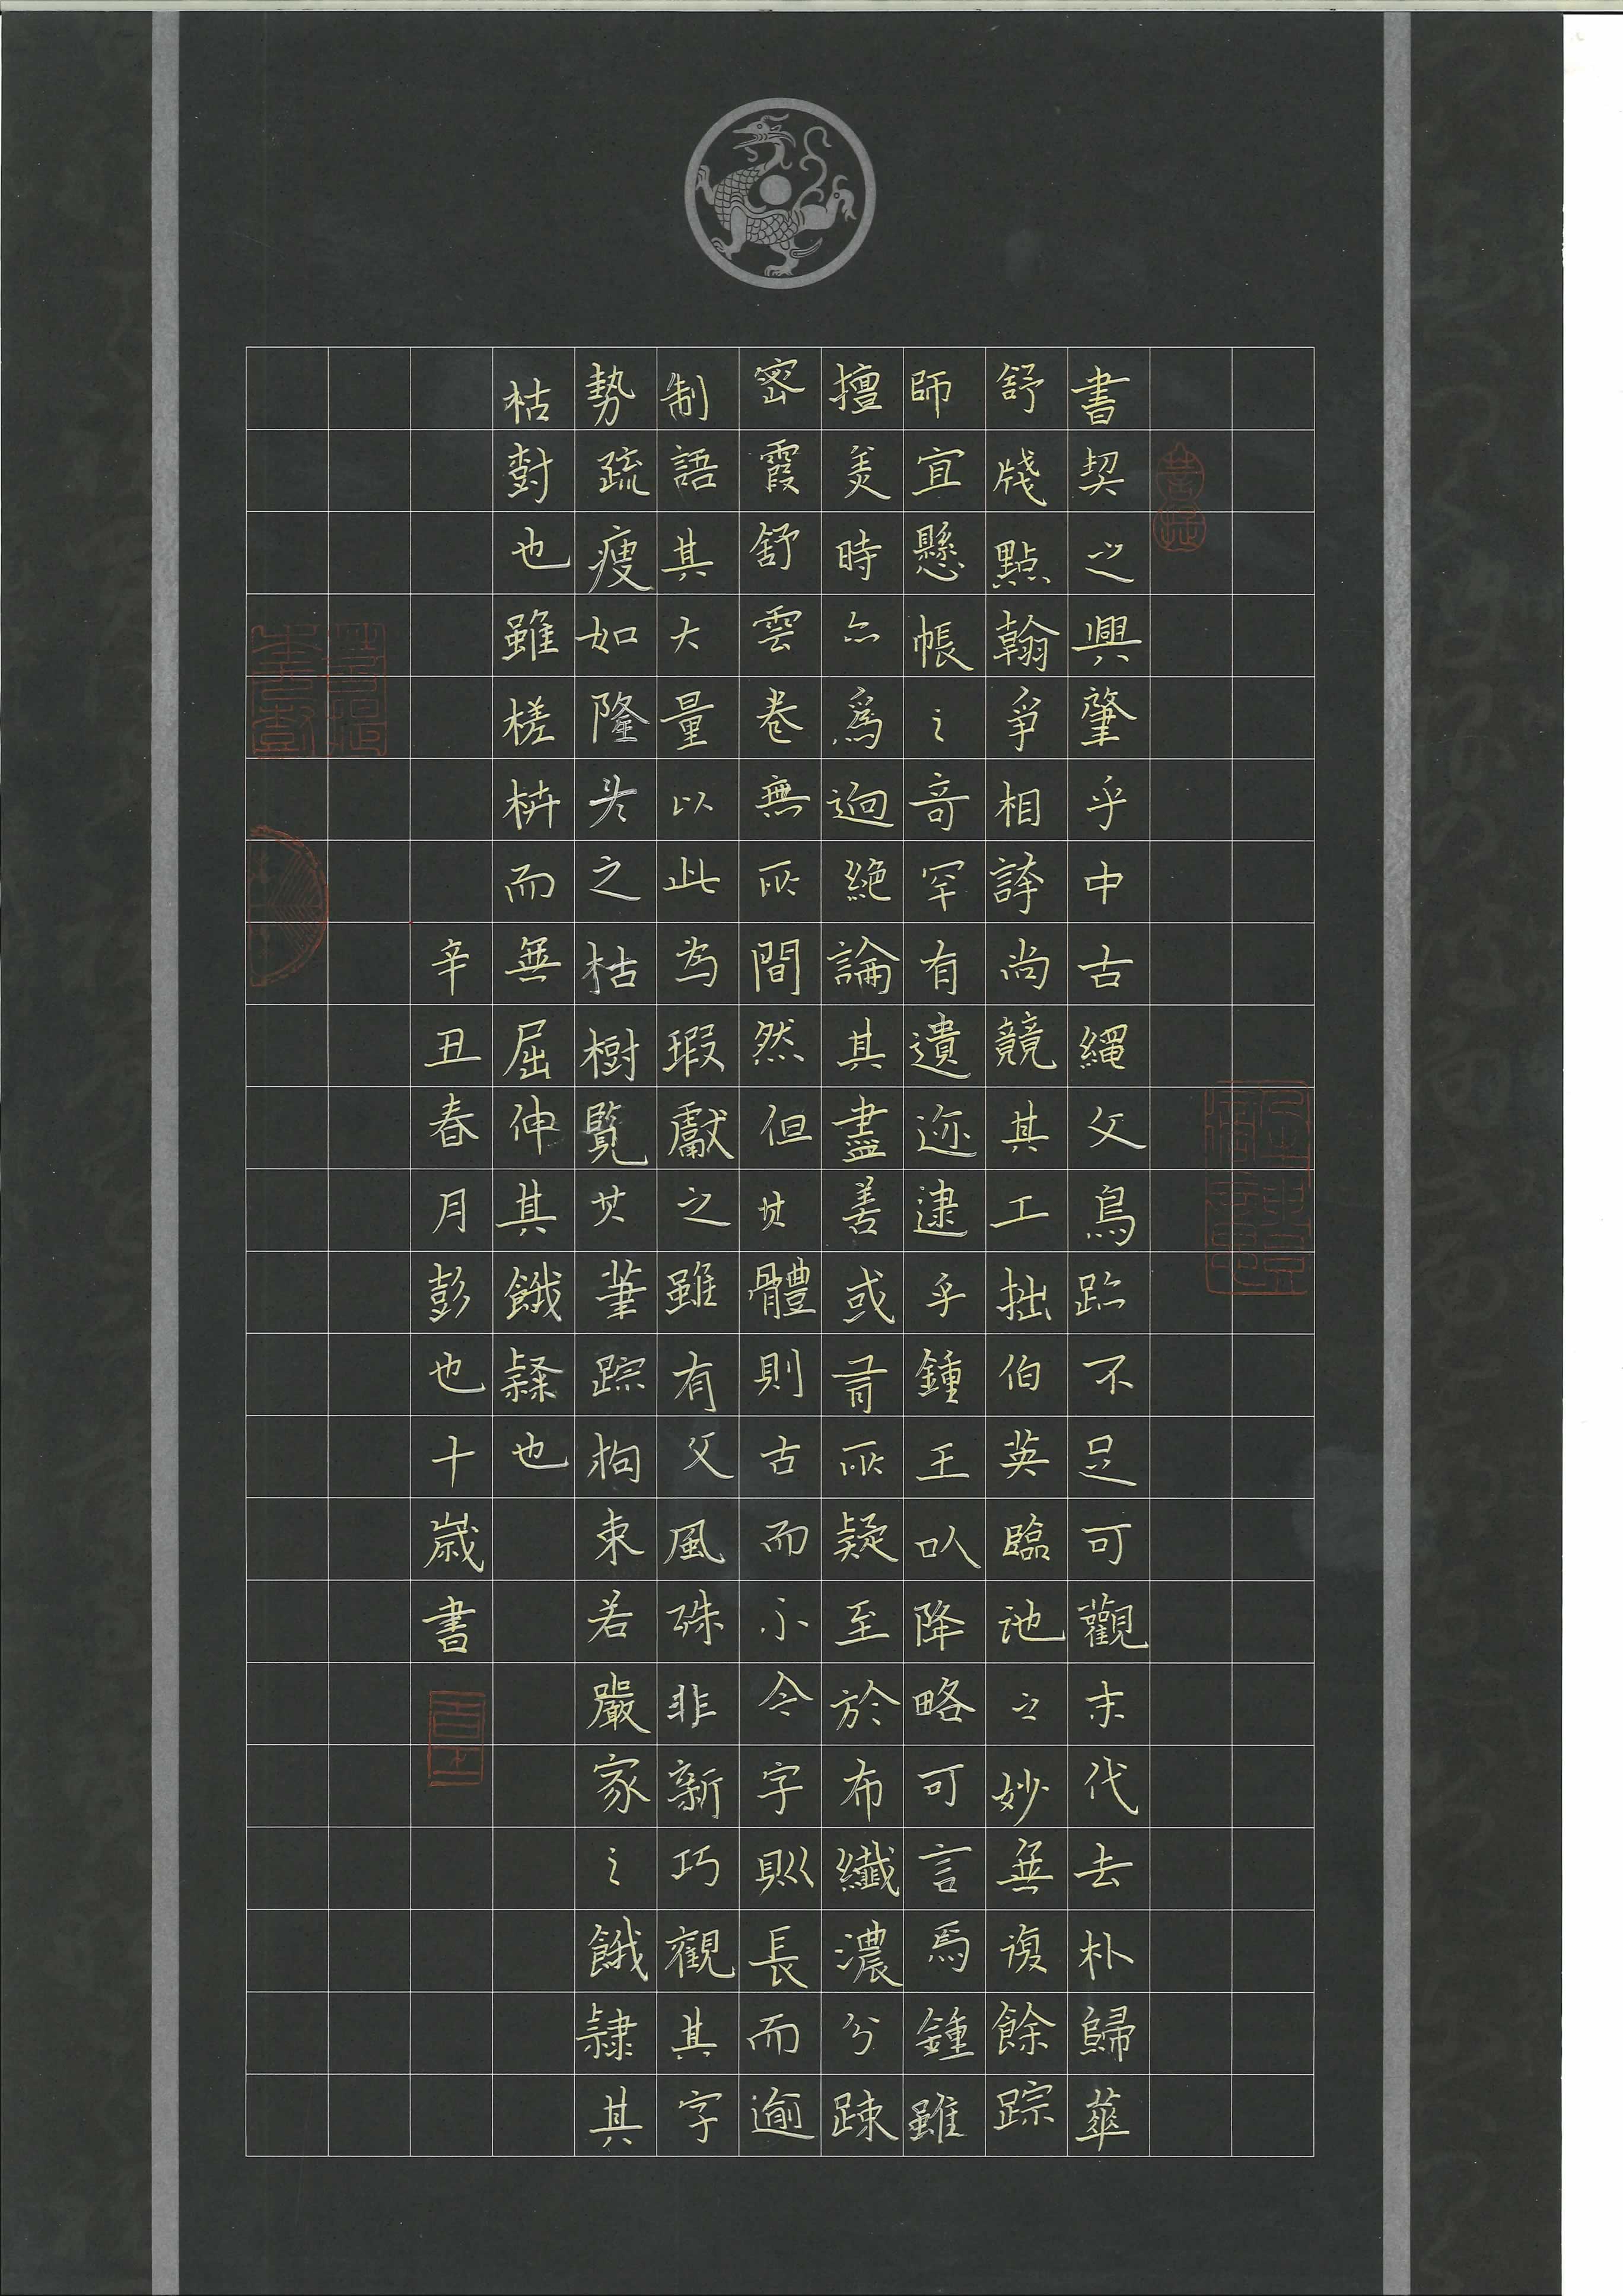 書契之興肇乎中古繩文鳥跡不足可觀末代去朴歸華
舒牋點翰爭相誇尚競其工拙伯英臨池之妙無復餘踪
師宜懸帳之奇罕有遺迹逮乎鍾王以降略可言焉鍾雖
擅美時亦為迥絕論其盡善或有所疑至於布纖濃分疎
密霞舒雲卷無所間然但其體則古而不今字則長而逾
制語其大量以此為瑕獻之雖有父風殊非新巧觀其字
勢疏瘦如隆冬之枯樹覽其筆踪拘束若嚴家之餓隸其
枯樹也雖槎枿而無屈伸其餓隸也
辛丑春月彭也十歲書